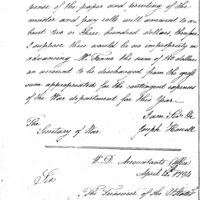 pense of the paper and printing of the
and pay rolls will amount to at
least two or three hundred dollars, therefore
I suppose there would be no impropriety in
advancing Mr. Fenno the sum of 100 dollars
on account to be discharged from the
sum appropriated for the contingent expences
of the War department for this year—
I am Sir &c
The Joseph Howell
Secretary of War.
W. D. Accountants Office
April 12th 1794
Sir
The Treasurer of the U States